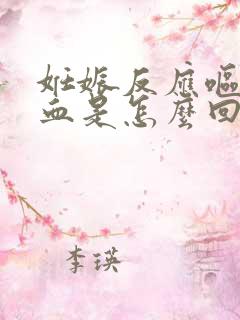 妊娠反應嘔
血是怎麼回
李瑛